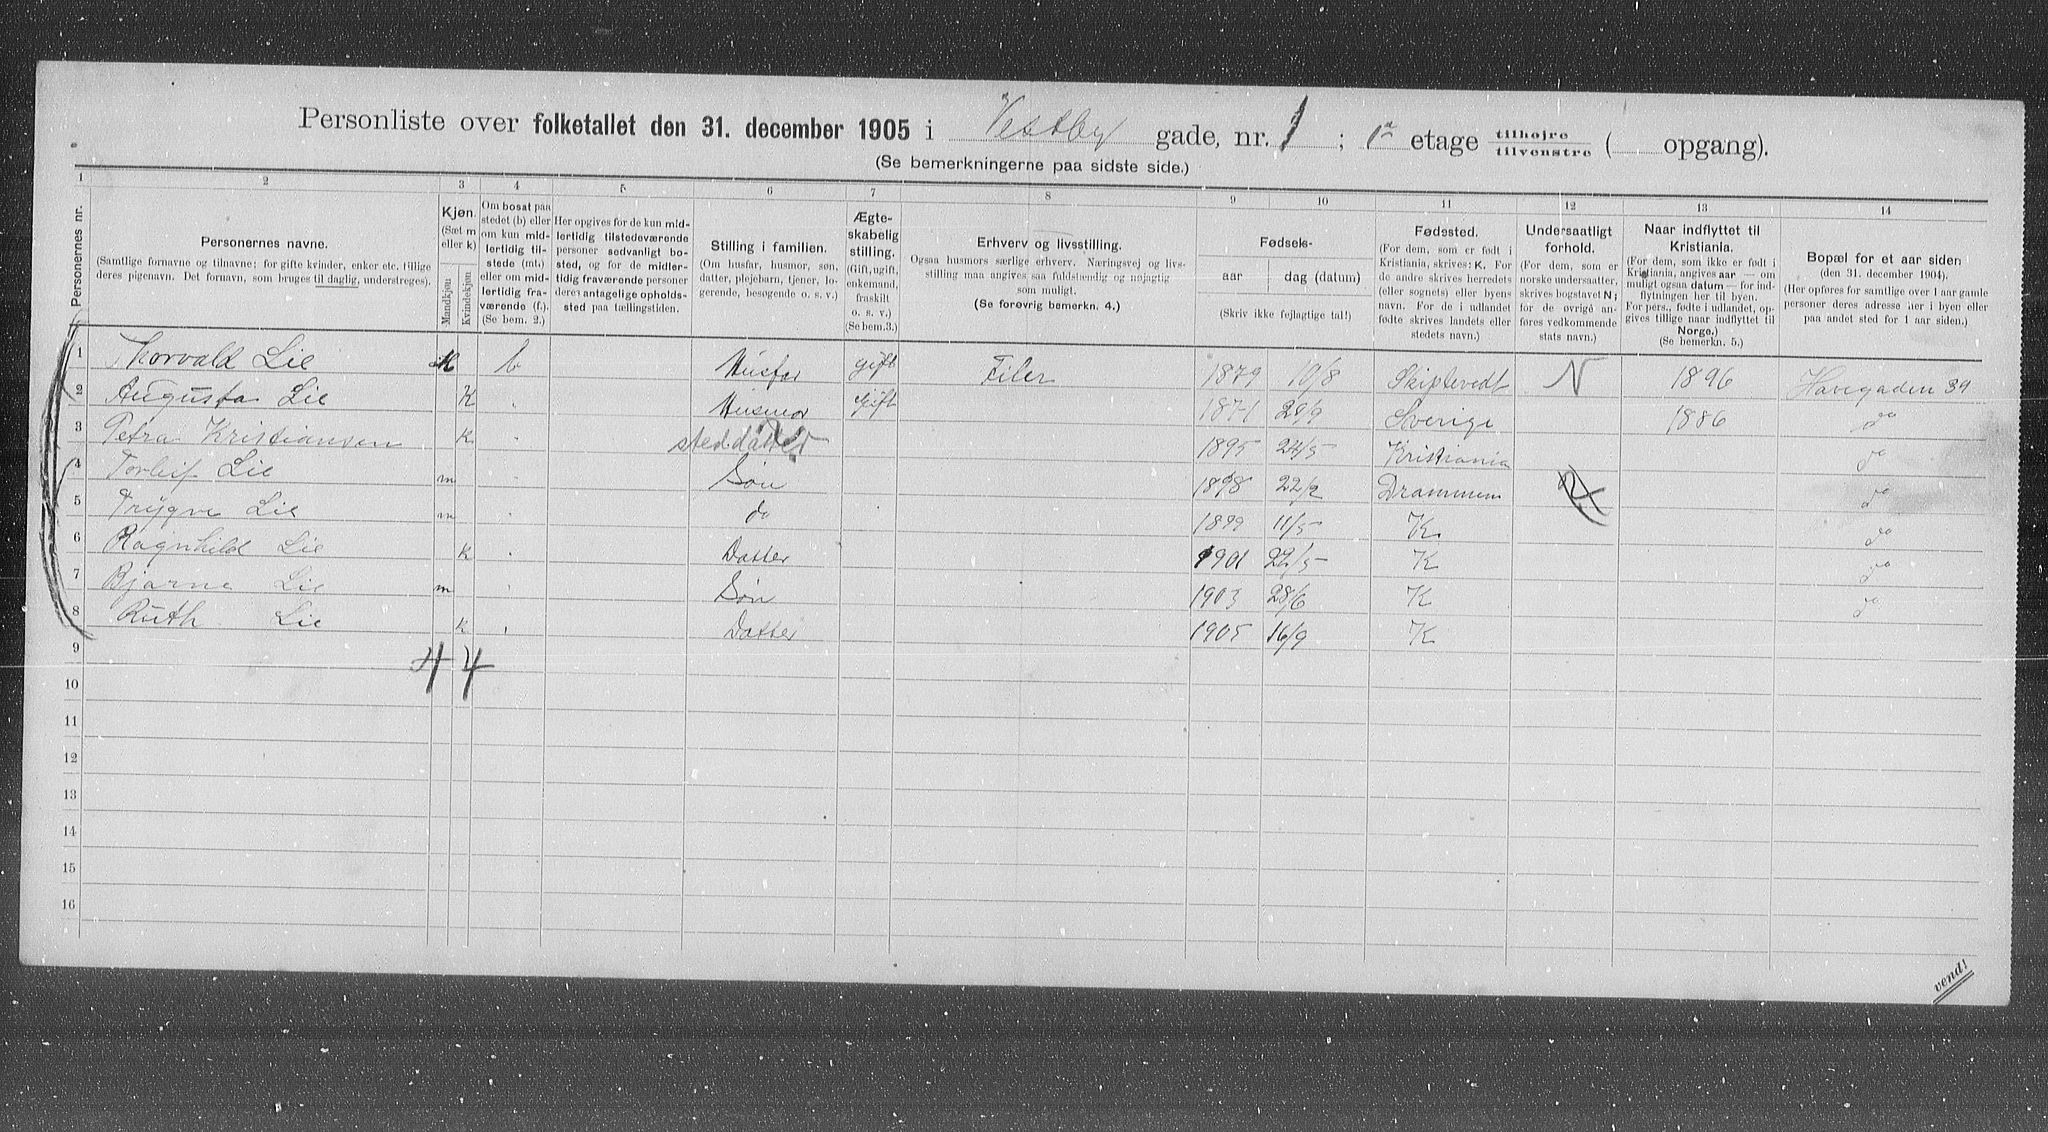 Personliste over folketallet den 31. december 1905 i Vestby gade, nr. 1 ; 1ste etage tilhøjre tilvenstre ( opgang).
(Se bemerkningerne paa sidste side.)
1 2 3 4 5 6 7 8 9 10 11 12 13 14
Personernes nr.
Personernes navne.
(Samtlige fornavne og tilnavne; for gifte kvinder, enker etc. tillige
deres pigenavn. Det fornavn, som bruges til daglig, understreges).
Kjøn.
(Sæt m
eller k)
Mandkjøn.
Kvindekjøn.
Om bosat paa
stedet (b) eller
om kun mid-
lertidig til-
stede (mt)
eller om mid-
lertidig fra-
værende (f).
(Se bem. 2.)
Her opgives for de kun mid-
lertidig tilstedeværende
personer sedvanligt bo-
sted, og for de midler-
tidig fraværende personer
deres antagelige opholds-
sted paa tællingstiden.
Stilling i familien.
(Om husfar, husmor, søn,
datter, plejebarn, tjener, lo-
gerende, besøgende o. s. v.)
Ægte-
skabelig
stilling.
(Gift, ugift,
enkemand,
fraskilt
o. s. v.)
(Se bem. 3.)
Erhverv og livsstilling.
Ogsaa husmors særlige erhverv. Næringsvej og livs-
stilling maa angives saa fuldstændig og nøjagtig
som muligt.
(Se forøvrig bemerkn. 4.)
Fødsels-
aar dag (datum)
(Skriv ikke fejlagtige tal!)
Fødested.
(For dem, som er født i
Kristiania, skrives: K. For
de andre skrives herredets
(eller sognets) eller byens
navn. For de i udlandet
fødte skrives landets eller
stedets navn.)
Undersaatligt
forhold.
(For dem, som er
norske undersaatter,
skrives bogstavet N;
for de øvrige an-
føres vedkommende
stats navn.)
Naar indflyttet til
Kristiania.
(For dem, som ikke er født i
Kristiania, angives aar — om
muligt ogsaa datum — for ind-
flytningen her til byen.
For pers., fødte i udlandet, op-
gives tillige naar indflyttet til
Norge.)
(Se bemerkn. 5.)
Bopæl for et aar siden
(den 31. december 1904).
(Her opføres for samtlige over 1 aar gamle
personer deres adresse her i byen eller
paa andet sted for 1 aar siden.)
1 Thorvald Lie M b Husfar gift Filer 1879 10/8 Skiptvedt N 1896 Havegaden 39
2 Augusta Lie K Husmor Gift 1871 29/9 Sverige 1886 do
3 Petra Kristiansen K steddatter 1895 24/5 Kristiania do
4 Torleif Lie m Søn 1898 22/2 Drammen do
5 Trygve Lie m do 1899 11/5 K do
6 Ragnhild Lie K Datter 1901 22/5 K do
7 Bjarne Lie m Søn 1903 28/6 K do
8 Ruth Lie K Datter 1905 16/9 K
9 4 4
10
11
12
13
14
15
16
vend!